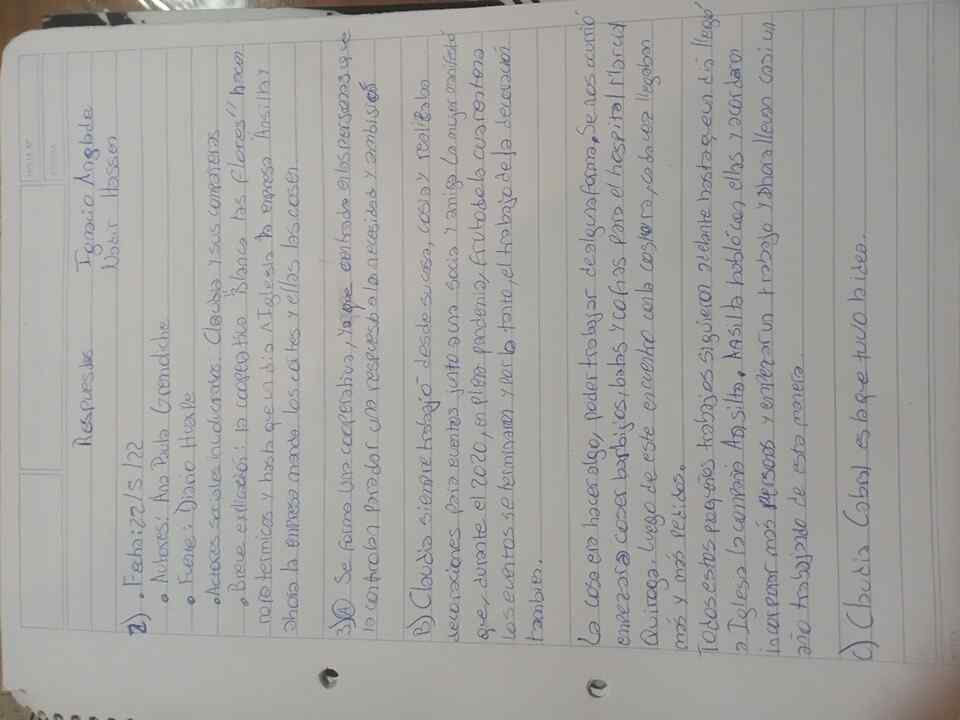 Respuestas
Ignacio Anglade
Nabir Hassen
2) • Fecha: 22/5/22
• Autores: Ana Paula Gremdiche
• Fuente: Diario Huarpe
• Actores sociales involucrados: Claudia y sus compañeras
• Breve explicación: la cooperativa "Blanca las Flores" hacen
ropa termicas y hasta que un dia a Iglesia la empresa Ansilta y
ahora la empresa manda los cortes y ellas las cosen.
3) A) Se forma una cooperativa, ya que entradas en las personas que
lo controlan para dar una respuesta a la necesidad y ambición
B) Claudia siempre trabajó desde su casa, cosía y realizaba
decoraciones para eventos junto a una socia y amiga. La mujer manifestó
que, durante el 2020, en plena pandemia, fruto de la cuarentena
los eventos se terminaron y por lo tanto, el trabajo de la decoración
también.
La cosa era hacer algo, poder trabajar de alguna forma. Se nos ocurrió
empezar a coser barbijos, batas y cofias para el hospital Marcial
Quiroga. Luego de este encuentro con la costura, cada vez llegaban
más y más pedidos.
Todos estos pequeños trabajos siguieron adelante hasta que un día llegó
a Iglesia la campaña Ansilta. Ansilta habló con ellas y acordaron
incorporar más personas y empezar un trabajo y ahora llevan casi un
año trabajando de esta manera.
C) Claudia Cabral es la que tuvo la idea.